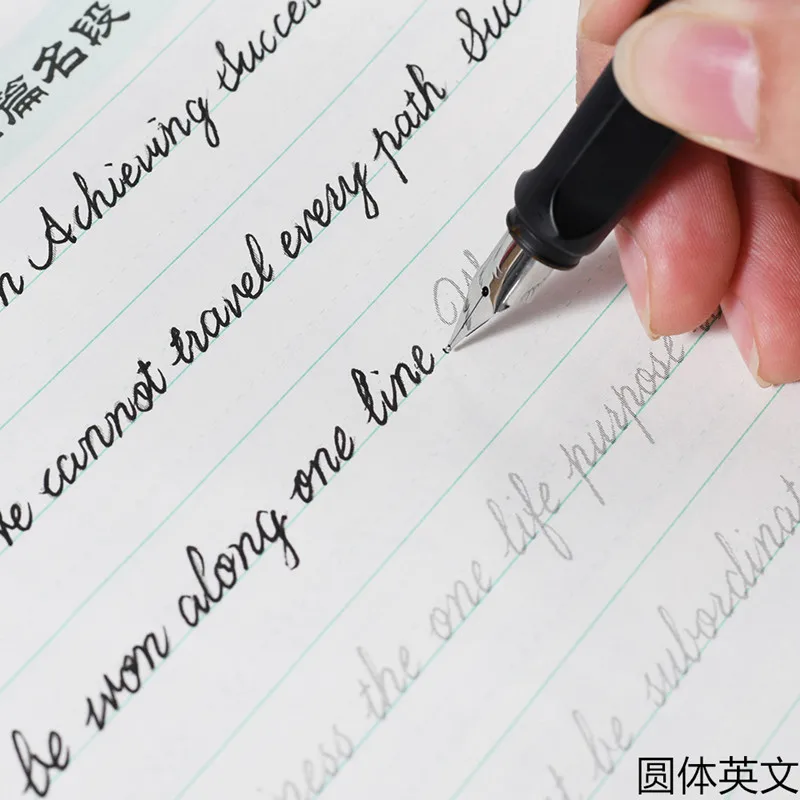 篇名段
Achieving Success
cannot travel every path Suc
be won along one line We
the one life purpose
be subordinat
圆体英文